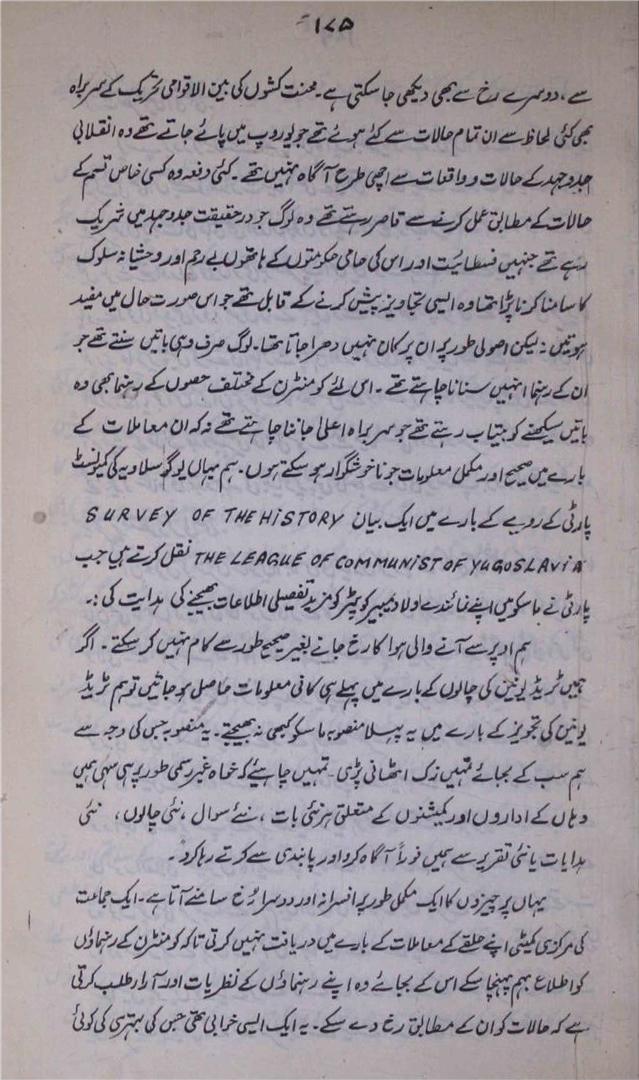 ۱۷۵
سے، دوسرے رخ سے بھی دیکھی جا سکتی ہے۔ محنت کشوں کی بین الاقوامی تحریک کے سربراہ
بھی کئی لحاظ سے ان تمام حالات سے کٹے ہوئے تھے جو یوروپ میں پائے جاتے تھے وہ انقلابی
جدوجہد کے حالات و واقعات سے اچھی طرح آگاہ نہیں تھے۔ کئی دفعہ وہ کسی خاص قسم کے
حالات کے مطابق عمل کرنے سے قاصر رہتے تھے وہ لوگ جو درحقیقت جدوجہد میں شریک
رہے تھے جنہیں فسطائیت اور اس کی حامی حکومتوں کے ہاتھوں بے رحم اور وحشیانہ سلوک
کا سامنا کرنا پڑا تھا وہ ایسی تجاویز پیش کرنے کے قابل تھے جو اس صورت حال میں مفید
ہوتیں؛ لیکن اصولی طور پر ان پر کان نہیں دھرا جاتا تھا۔ لوگ صرف وہی باتیں سنتے تھے جو
ان کے رہنما انہیں سنانا چاہتے تھے۔ اس لئے کومنٹرن کے مختلف حصوں کے رہنما بھی وہ
باتیں سیکھنے کو بیتاب رہتے تھے جو سربراہ اعلیٰ جاننا چاہتے تھے نہ کہ ان معاملات کے
بارے میں صحیح اور مکمل معلومات جو ناخوشگوار ہو سکتے ہوں۔ ہم یہاں یوگوسلاویہ کی کمیونسٹ
پارٹی کے رویے کے بارے میں ایک بیان SURVEY OF THE HISTORY
THE LEAGUE OF COMMUNIST OF YUGOSLAVIA نقل کرتے ہیں جب
پارٹی نے ماسکو میں اپنے نمائندے اولادیمیر کوپٹر کو مزید تفصیلی اطلاعات بھیجنے کی ہدایت کی :۔
ہم اوپر سے آنے والی ہوا کا رخ جانے بغیر صحیح طور سے کام نہیں کر سکتے۔ اگر
ہمیں ٹریڈ یونین کی چالوں کے بارے میں پہلے ہی کافی معلومات حاصل ہو جاتیں تو ہم ٹریڈ
یونین کی تجویز کے بارے میں یہ پہلا منصوبہ ماسکو کبھی نہ بھیجتے۔ یہ منصوبہ جس کی وجہ سے
ہم سب کے بجائے تمہیں زک اٹھانی پڑی۔ تمہیں چاہیئے کہ خواہ غیر رسمی طور پر ہی سہی ہمیں
وہاں کے اداروں اور کمیشنوں کے متعلق ہر نئی بات، نئے سوال، نئی چالوں، نئی
ہدایات یا نئی تقریر سے ہمیں فوراً آگاہ کرو اور پابندی سے کرتے رہا کرو۔
یہاں پر چیزوں کا ایک مکمل طور پر افسرانہ اور دوسرا رُخ سامنے آتا ہے۔ ایک جماعت
کی مرکزی کمیٹی اپنے حلقے کے معاملات کے بارے میں دریافت نہیں کرتی تاکہ کومنٹرن کے رہنماؤں
کو اطلاع بہم پہنچا سکے اس کے بجائے وہ اپنے رہنماؤں کے نظریات اور آراء طلب کرتی
ہے کہ حالات کو ان کے مطابق رخ دے سکے۔ یہ ایک ایسی خرابی تھی جس کی بہتری کی کوئی